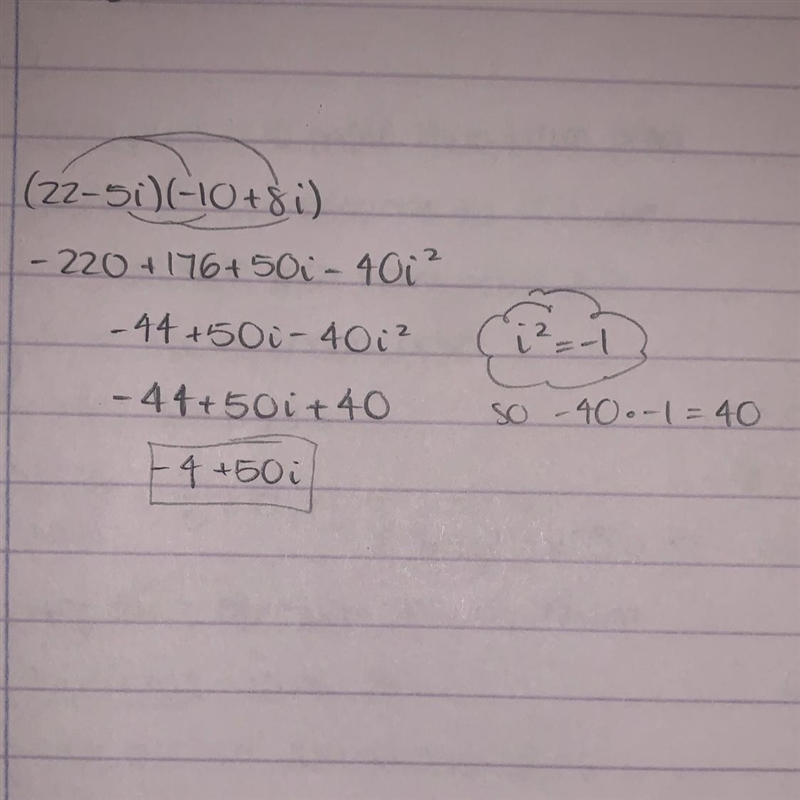 (22-5i)(-10+8i)
-220+176+50i-40i²
-44+50i-40i²
i²=-1
-44+50i+40
so -40•-1=40
-4+50i